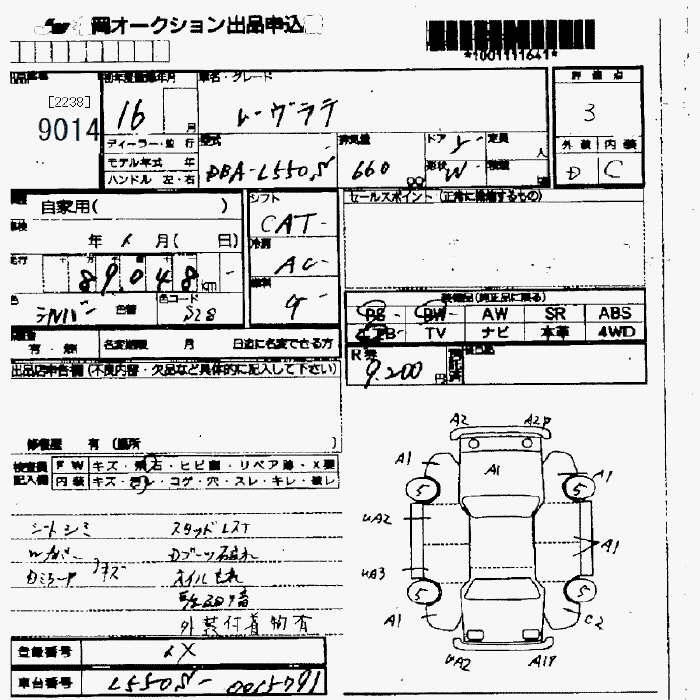 岡オークション出品申込
*1001111641*
初年度登録年月
車名・グレード
評価点
[2238]
9014
16
月
レーヴラテ
3
ディーラー・並行
モデル年式 年
ハンドル 左・右
型式
DBA-L550S
排気量
660
ドア
形状
W
定員
人
積載
外装 内装
D C
自家用( )
年 月( 日)
シフト
CAT
冷房
AC
セールスポイント (正常に稼働するもの)
走行
89048 km
シルバー
色替
色コード
S28
装備品(純正品に限る)
PS PW AW SR ABS
TV ナビ 本革 4WD
有・無
名変期限 月 日迄に名変できる方
R券
9,200円
出品店申告欄 (不良内容・欠品など具体的に記入して下さい)
修復歴 有 (箇所 )
検査員
記入欄
FW キズ・飛石・ヒビ割・リペア跡・X要
内装 キズ・汚レ・コゲ・穴・スレ・キレ・破レ
シートシミ
スタッドレスT
Dブーツ破れ
Dミラー キズ
オイルもれ
外装付着物有
A2 A2P
A1 A1 A1
5 5
UA2 A1
UA3
5 5
A1 C2
UA2 A1P
登録番号
車台番号 L550S-0015791